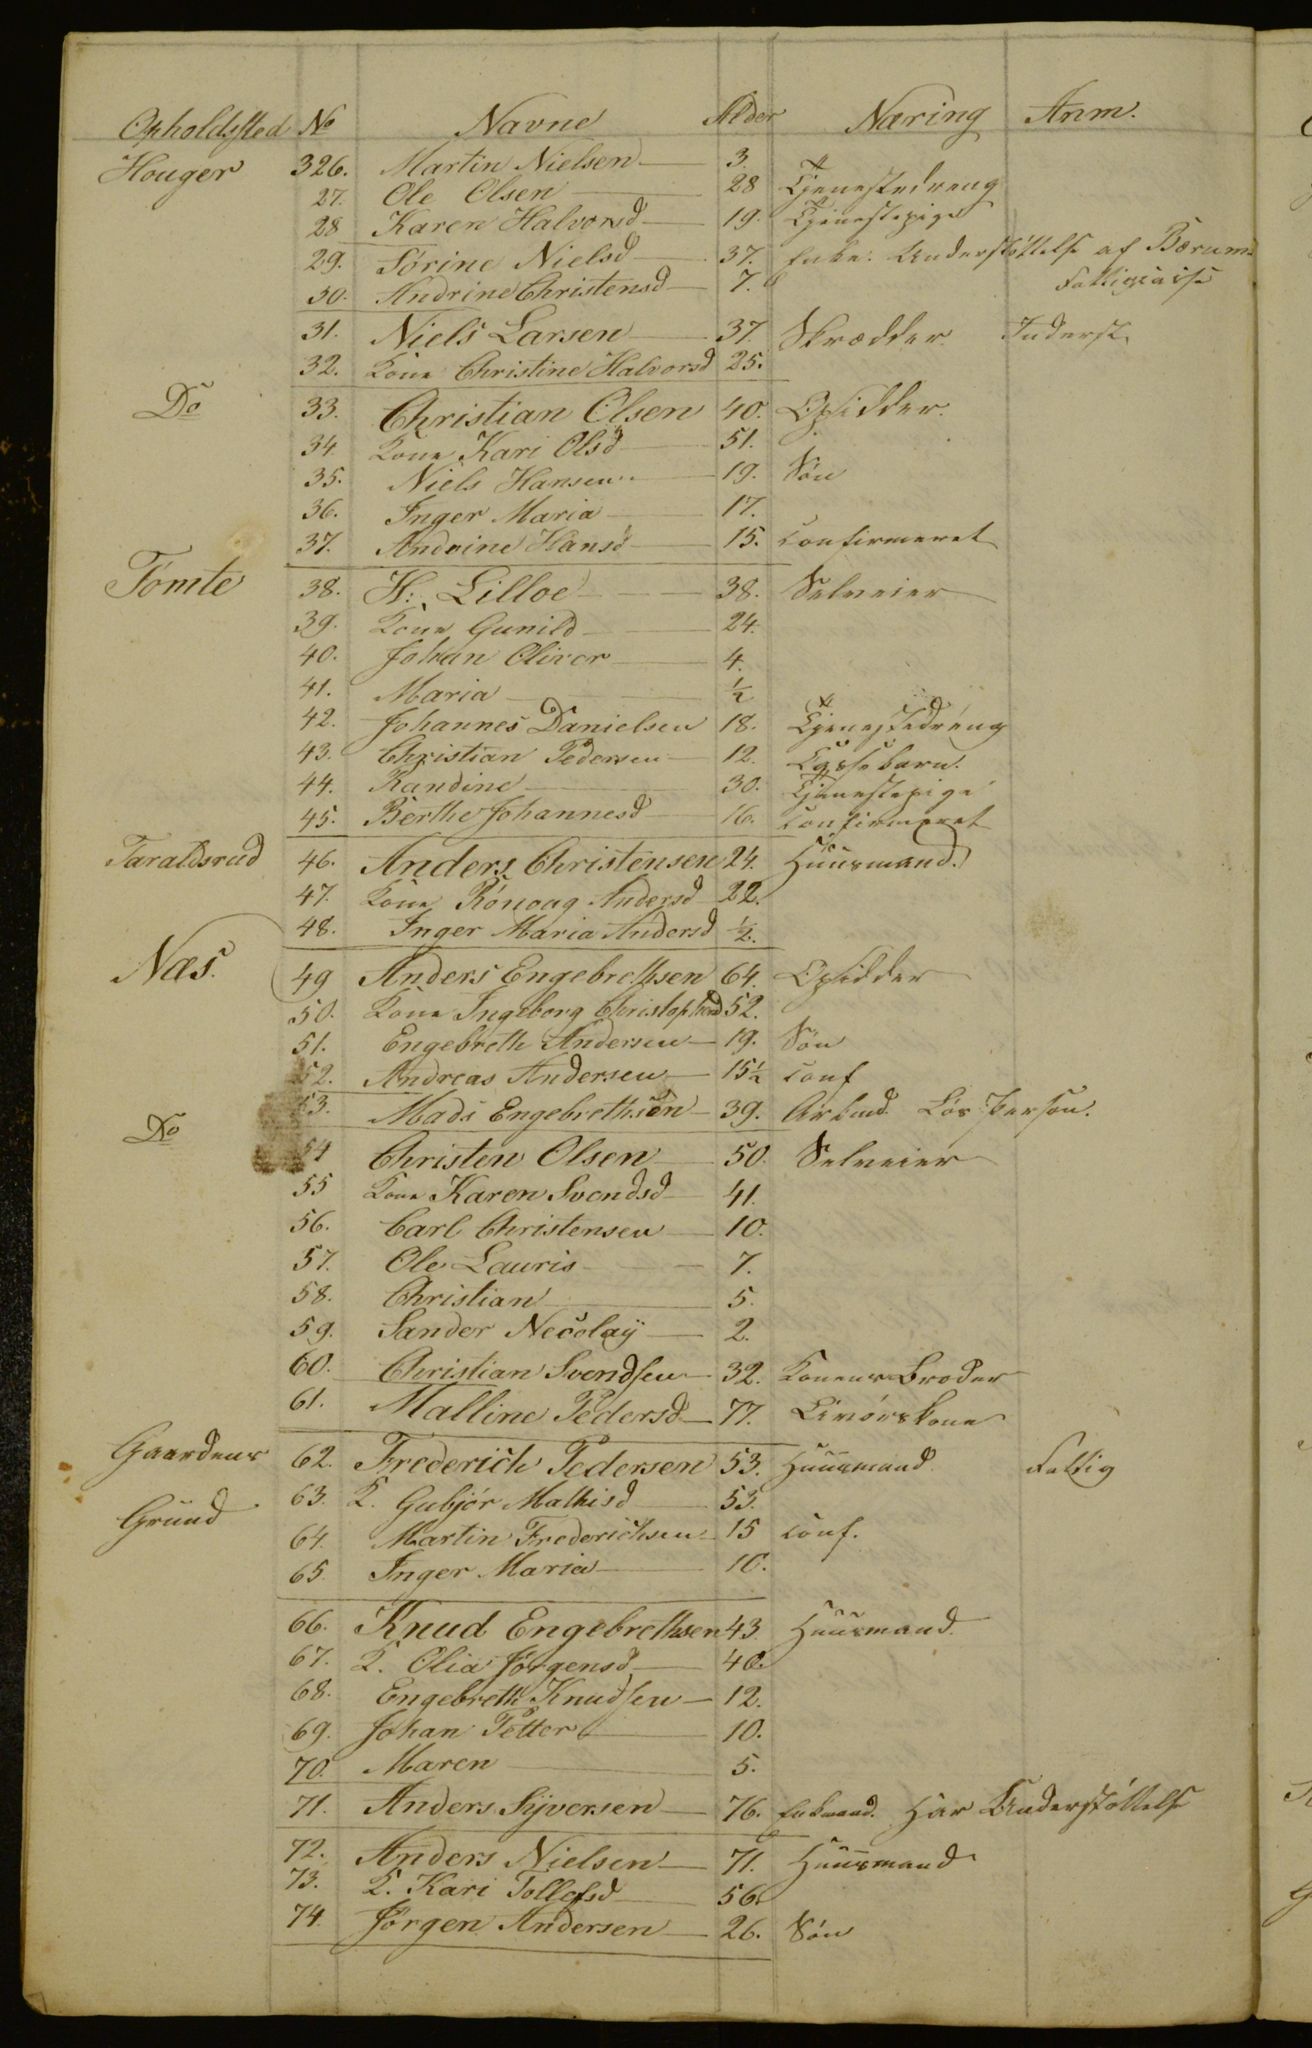 Opholdsted No Navne Alder Næring Anm.
Houger 326. Martin Nielsen 3.
27. Ole Olsen 28 Tjenestedreng
28 Karen Halvorsd 19. Tjenestepige
29. Sörine Nielsd 37. Enke. Understöttelse af Bærums
30. Andrine Christensd 7. Fattigcasse
31. Niels Larsen 37. Skrædder. Inderst
32. Kone Christine Halvorsd 25.
Do 33. Christian Olsen 40. Opsidder.
34. Kone Kari Olsd 51.
35. Niels Hansen 19. Sön
36. Inger Maria 17.
37. Andrine Hansd 15. confirmeret
Tömte 38. H: Lilloe 38. Selveier
39. Kone Gunild 24.
40. Johan Oliver 4.
41. Maria ½
42. Johannes Danielsen 18. Tjenestedreng
43. Christian Pedersen 12. Lysebarn.
44. Randine 30. Tjenestepige
45. Berthe Johannesd 16. confirmeret
Taraldsrud 46. Anders Christensen 24. Huusmand.
47. Kone Rönoug Andersd 22.
48. Inger Maria Andersd ½.
Næs. 49 Anders Engebrethsen 64. Opsidder
50. Kone Ingeborg Christophersd 52.
51. Engebreth Andersen 19. Sön
52. Andreas Andersen 15½ conf
53. Mads Engebrethsen 39. Arbmd. Lös Person.
Do 54 Christen Olsen 50. Selveier
55 Kone Karen Svendsd 41.
56. Carl Christensen 10.
57. Ole Lauris 7.
58. Christian 5.
59. Sander Necolaÿ 2.
60. Christian Svendsen 32. Konens Broder
61. Malline Pedersd 77. Livörskone
Gaardens 62. Frederich Pedersen 53. Huusmand. Fattig
Grund 63. K. Gubjör Mathisd 55.
64. Martin Frederichsen 15 conf.
65. Inger Maria 10.
66. Knud Engebrethsen 43 Huusmand.
67. K. Olia Jörgensd 40.
68. Engebreth Knudsen 12.
69. Johan Petter 10.
70. Maren 5.
71. Anders Syversen 76. Enkmand. Har Understöttelse
72. Anders Nielsen 71. Huusmand
73. K. Kari Tollefsd 56.
74. Jörgen Andersen 26. Sön